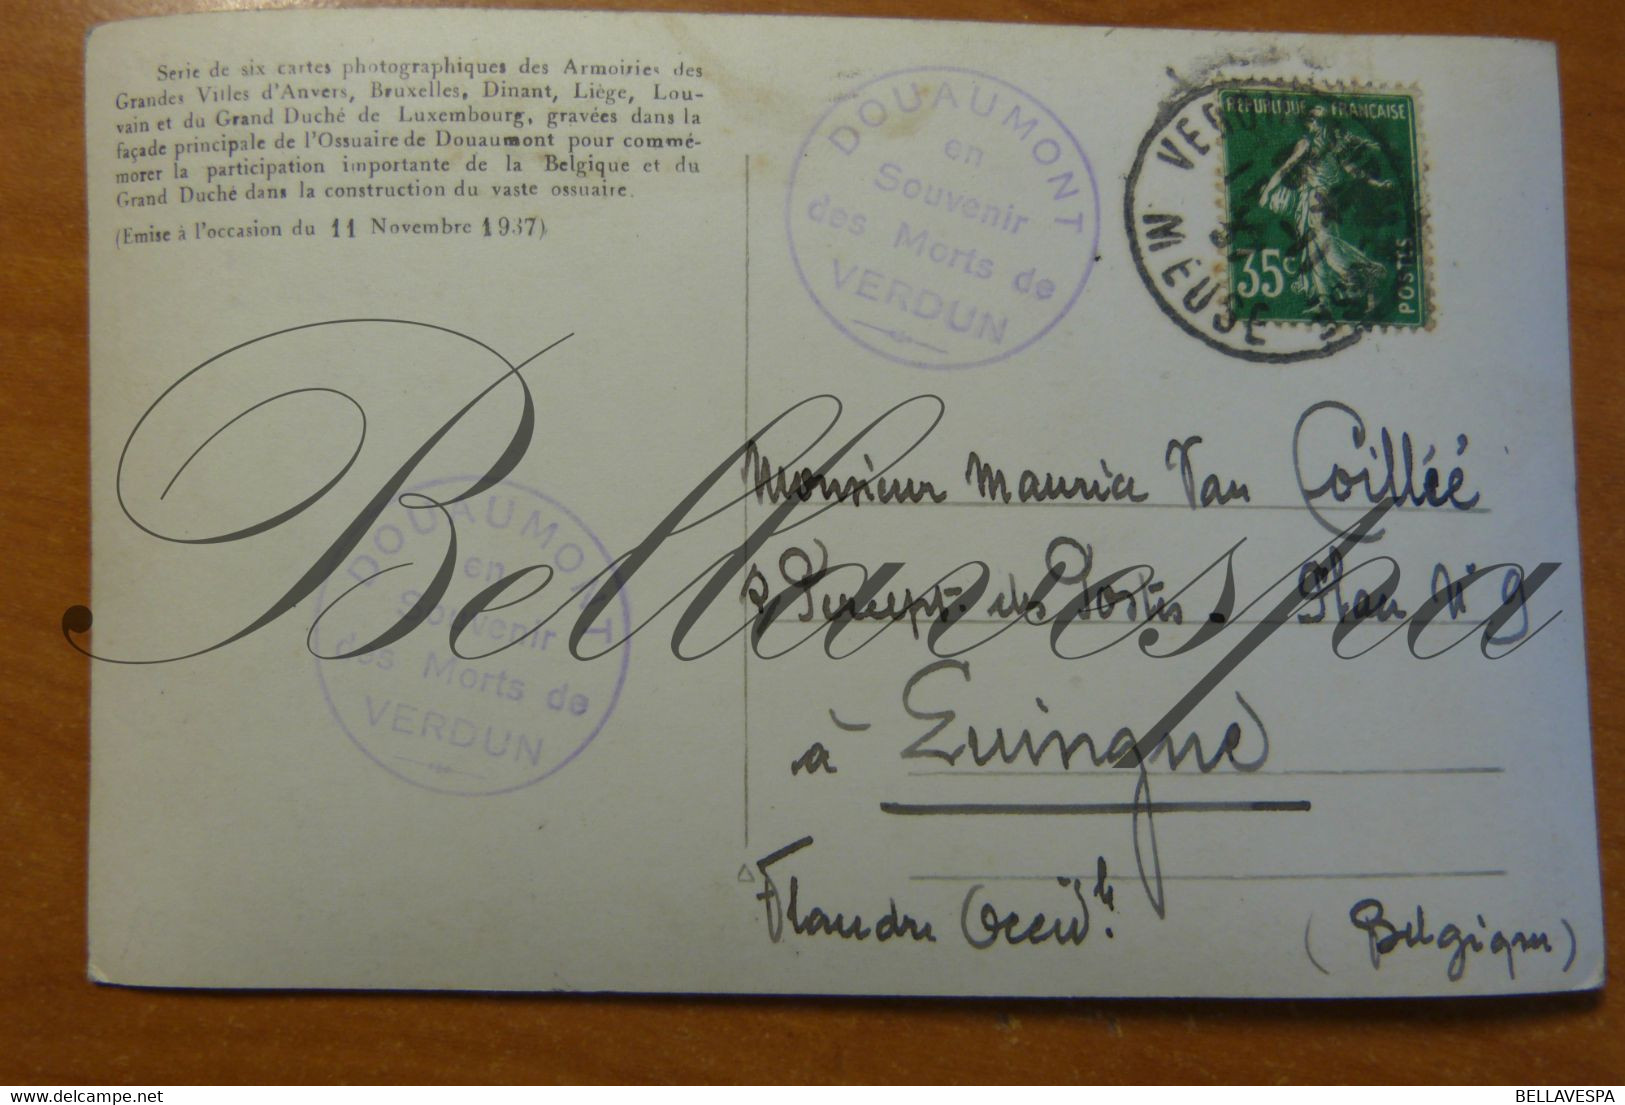 Serie de six cartes photographiques des Armoiries des
Grandes Villes d'Anvers, Bruxelles, Dinant, Liège, Lou-
vain et du Grand Duché de Luxembourg, gravées dans la
façade principale de l'Ossuaire de Douaumont pour commé-
morer la participation importante de la Belgique et du
Grand Duché dans la construction du vaste ossuaire.
(Emise à l'occasion du 11 Novembre 1937)
DOUAUMONT
en
Souvenir
des Morts de
VERDUN
REPUBLIQUE FRANÇAISE
35c
POSTES
VERDUN
MEUSE
Monsieur Maurice Van Coillée
Percept. des Postes. Plac N° 9
à
Flandre Occid.le
(Belgique)
DOUAUMONT
en
Souvenir
des Morts de
VERDUN
Bellavespa
BELLAVESPA